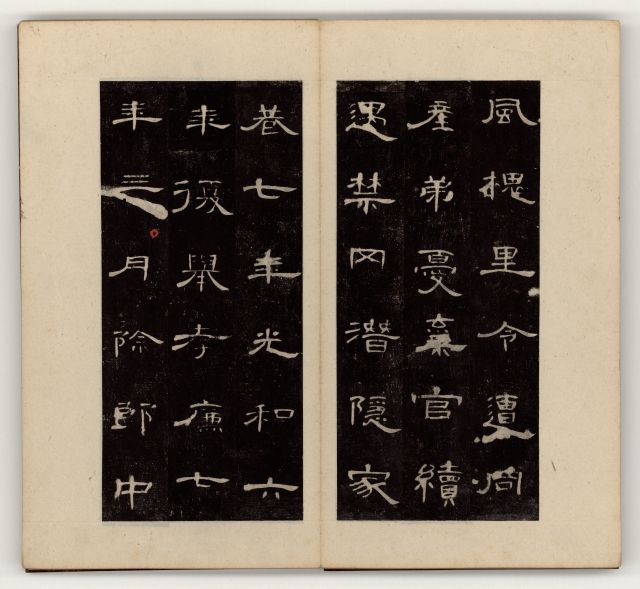 風槐里令遭同
産弟憂棄官續
遇禁网潛隱家
巷七年光和六
年復舉孝廉七
年三月除郎中